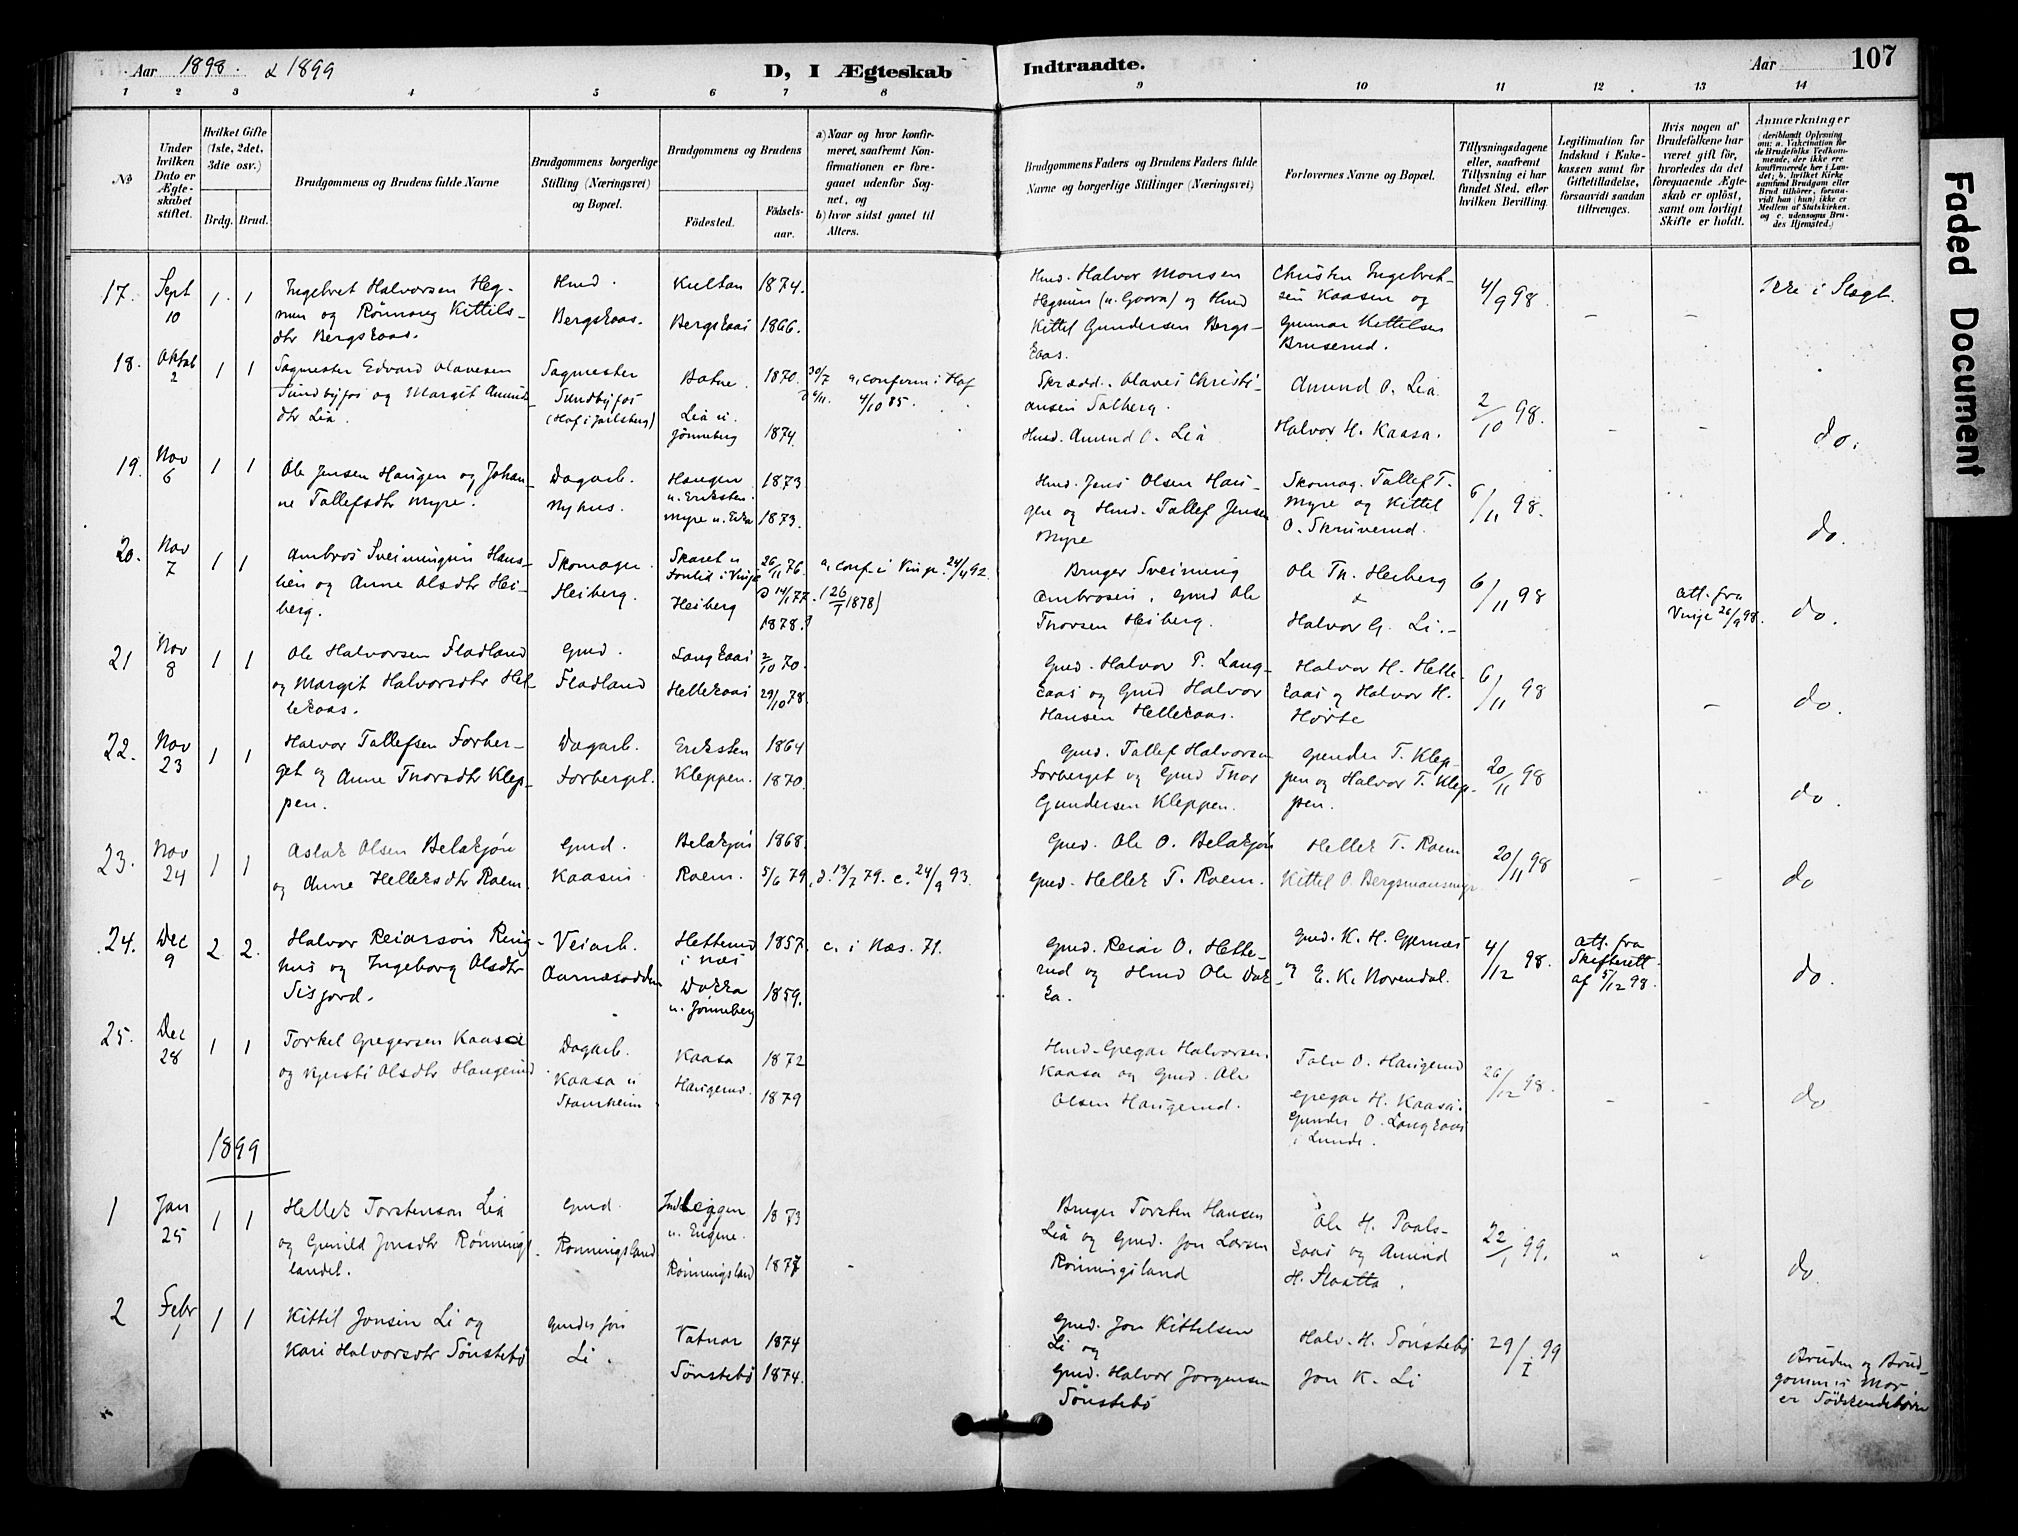 Aar 1898. & 1899
D, I Ægteskab
Indtraadte.
Aar
107
1 2 3 4 5 6 7 8 9 10 11 12 13 14
No
Under hvilken Dato er Ægteskabet stiftet.
Hvilket Gifte (1ste, 2det, 3die osv.)
Brdg. Brud.
Brudgommens og Brudens fulde Navne
Brudgommens borgerlige Stilling (Næringsvei) og Bopæl.
Brudgommens og Brudens
Födested.
Födselsaar.
a) Naar og hvor konfirmeret, saafremt Konfirmationen er foregaaet udenfor Sognet, og
b) hvor sidst gaaet til Alters.
Brudgommens Faders og Brudens Faders fulde Navne og borgerlige Stillinger (Næringsvei)
Forlovernes Navne og Bopæl.
Tillysningsdagene eller, saafremt Tillysning ei har fundet Sted, efter hvilken Bevilling.
Legitimation for Indskud i Enkekassen samt for Giftetilladelse, forsaavidt saadan tiltrænges.
Hvis nogen af Brudefolkene har været gift för, hvorledes da det foregaaende Ægteskab er oplöst, samt om lovligt Skifte er holdt.
Anmærkninger
(deriblandt Oplysning om: a. Vaccination for de Brudefolks Vedkommende, der ikke ere konfirmerede her i Landet; b. hvilket Kirkesamfund Brudgom eller Brud tilhörer, forsaavidt han (hun) ikke er Medlem af Statskirken. og c. udensogns Brudes Hjemsted.)
Faded Document
17. Sept 10 1. 1 Ingebret Halvorsen Hegnun og Rönnaug Kittilsdtr Bergskaas. Husd. Bergskaas. Kultan 1874. Bergskaas 1866.
Husd. Halvor Monsen Hegnun (u. Goova) og Husd Kittil Gundersen Bergskaas. Christen Ingebretsen Kaasen og Gunnar Kittilsen Bruserud. 4/9 98. – – Ikke i Slægt.
18. Oktob 2 1 1 Sagmester Edvard Olavesen Sundbyfos og Margit Amundsdtr Lia. Sagmester Sundbyfos (Hof i Jarlsberg) Botne. 1870. 30/7 a, conferm i Hof 4/10 85. Lia u. Jönneberg 1874.
Skrædd. Olaves Christiansen Solberg. Husd. Amund O. Lia Amund O. Lia Halvor H. Kaasa. 2/10 98. – – do.
19. Nov 6 1 1 Ole Jensen Haugen og Johanne Tallefsdtr Myre. Dagarb. Nyhus. Haugen u. Eriksten. 1873 Myre u. Eika 1873.
Husd. Jens Olsen Haugen og Husd. Tallef Jensen Myre Skomag. Tallef T. Myre og Kittel O. Skruverud. 6/11 98. do.
20. Nov 7 1 1 Ambros Sveinungsen Hanslien og Anne Olsdtr Heiberg. Skomager. Heiberg. Skaset u Fonlid i Vinje 26/11 76. D 14/1 77. a, conf. i Vinje. 24/4 92. Heiberg 1878. (26/1 1878)
Bruger Sveinung Ambrosen, Gmd Ole Thorsen Heiberg. Ole Th. Heiberg & Halvor G. Li. – 6/11 98 Att. fra Vinje 26/9 98. do.
21 Nov 8 1 1 Ole Halvorsen Fladland og Margit Halvorsdtr Hellekaas. Gmd. Fladland Langkaas 2/10 70. Hellekaas 29/10 78.
Gmd. Halvor P. Langkaas og Gmd Halvor Hansen Hellekaas. Halvor H. Hellekaas og Halvor H. Hörte 6/11 98 – do.
22. Nov 23 1 1 Halvor Tallefsen Forberget og Anne Thorsdtr Kleppen. Dagarb. Forberget. Eriksten 1864 Kleppen. 1870.
Gmd. Tallef Halvorsen Forberget og Gmd Thor Gundersen Kleppen. Gunder T. Kleppen og Halvor T. Kleppen. 20/11 98 do.
23. Nov 24 1 1 Aslak Olsen Belakjön og Anne Helleksdtr Roem. Gmd. Kaasen Belakjön 1868. Roem. 5/6 79. d. 13/7 79. c. 24/9 93.
Gmd. Ole O. Belakjön Gmd. Hellek T. Roem. Hellek T. Roem Kittel O Bergsmansmyr 20/11 98 – – do
24. Dec 9 2. 2. Halvor Reiarson Ringhus og Ingeborg Olsdtr Sisjord. Veiarb. Aarnæsodden Hetterud i Næs 1857. c. i Næs. 71. Dokka u. Jönneberg 1859.
Gmd. Reiar O. Hetterud og Husd Ole Dokka. Gmd. K. H. Gjernæs og E. K. Norendal. 4/12 98. Att. fra Skifterett. af 5/12 98. do.
25. Dec 28 1 1 Torkel Gregersen Kaasa og Kjersti Olsdtr Haugerud. Dagarb. Kaasa u Stamheim Kaasa 1872 Haugerud. 1879
Husd. Gregar Halvorsen Kaasa og Gmd. Ole Olsen Haugerud. Talv O. Haugerud Gregar H. Kaasa. Gunder O. Langkaas i Lunde. 26/12 98. – – do
1899
1 Jan 25 1 1 Hellek Torstenson Lia og Gunild Jonsdtr Rönningslandet. Gmd. Rönningsland Indleggen u. Eugene. 1873 Rönningsland 1877
Bruger Torsten Hansen Lia og Gmd. Jon Larsen Rönningsland Ole H. Paalskaas og Amund H. Flaatta. 22/1 99. " " do
2 Febr 1 1 1 Kittil Jonsen Li og Kari Halvorsdtr Sönstebö Li. Vatnar 1874 Sönstebö 1874.
Gmd. Jon Kittelsen Li og Gmd. Halvor Jorgensen Sönstebö Halv. H. Sönstebö Jon K. Li 29/I 99 Bruden og Brudgommens Mor er Södskendebörn